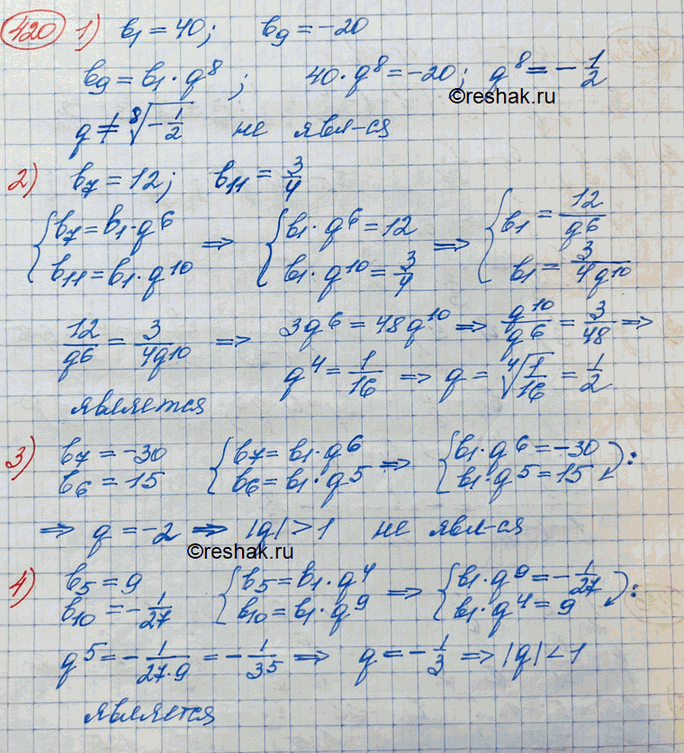 420 1) b₁ = 40; b₉ = -20
b₉ = b₁ · q⁸; 40 · q⁸ = -20; q⁸ = -1/2
©reshak.ru
q ≠ ⁸√(-1/2) не явл-ся
2) b₇ = 12; b₁₁ = 3/4
{b₇ = b₁ · q⁶ ⇒ {b₁ · q⁶ = 12 ⇒ {b₁ = 12/q⁶
b₁₁ = b₁ · q¹⁰ b₁ · q¹⁰ = 3/4 b₁ = 3/4q¹⁰
12/q⁶ = 3/4q¹⁰ ⇒ 3q⁶ = 48q¹⁰ ⇒ q¹⁰/q⁶ = 3/48 ⇒
q⁴ = 1/16 ⇒ q = ⁴√(1/16) = 1/2
является
3) b₇ = -30 {b₇ = b₁ · q⁶ ⇒ {b₁ · q⁶ = -30 :
b₆ = 15 b₆ = b₁ · q⁵ b₁ · q⁵ = 15
⇒ q = -2 ⇒ |q| > 1 не явл-ся
©reshak.ru
4) b₅ = 9 {b₅ = b₁ · q⁴ ⇒ {b₁ · q⁹ = -1/27 :
b₁₀ = -1/27 b₁₀ = b₁ · q⁹ b₁ · q⁴ = 9
q⁵ = -1/27·9 = -1/3⁵ ⇒ q = -1/3 ⇒ |q| < 1
является